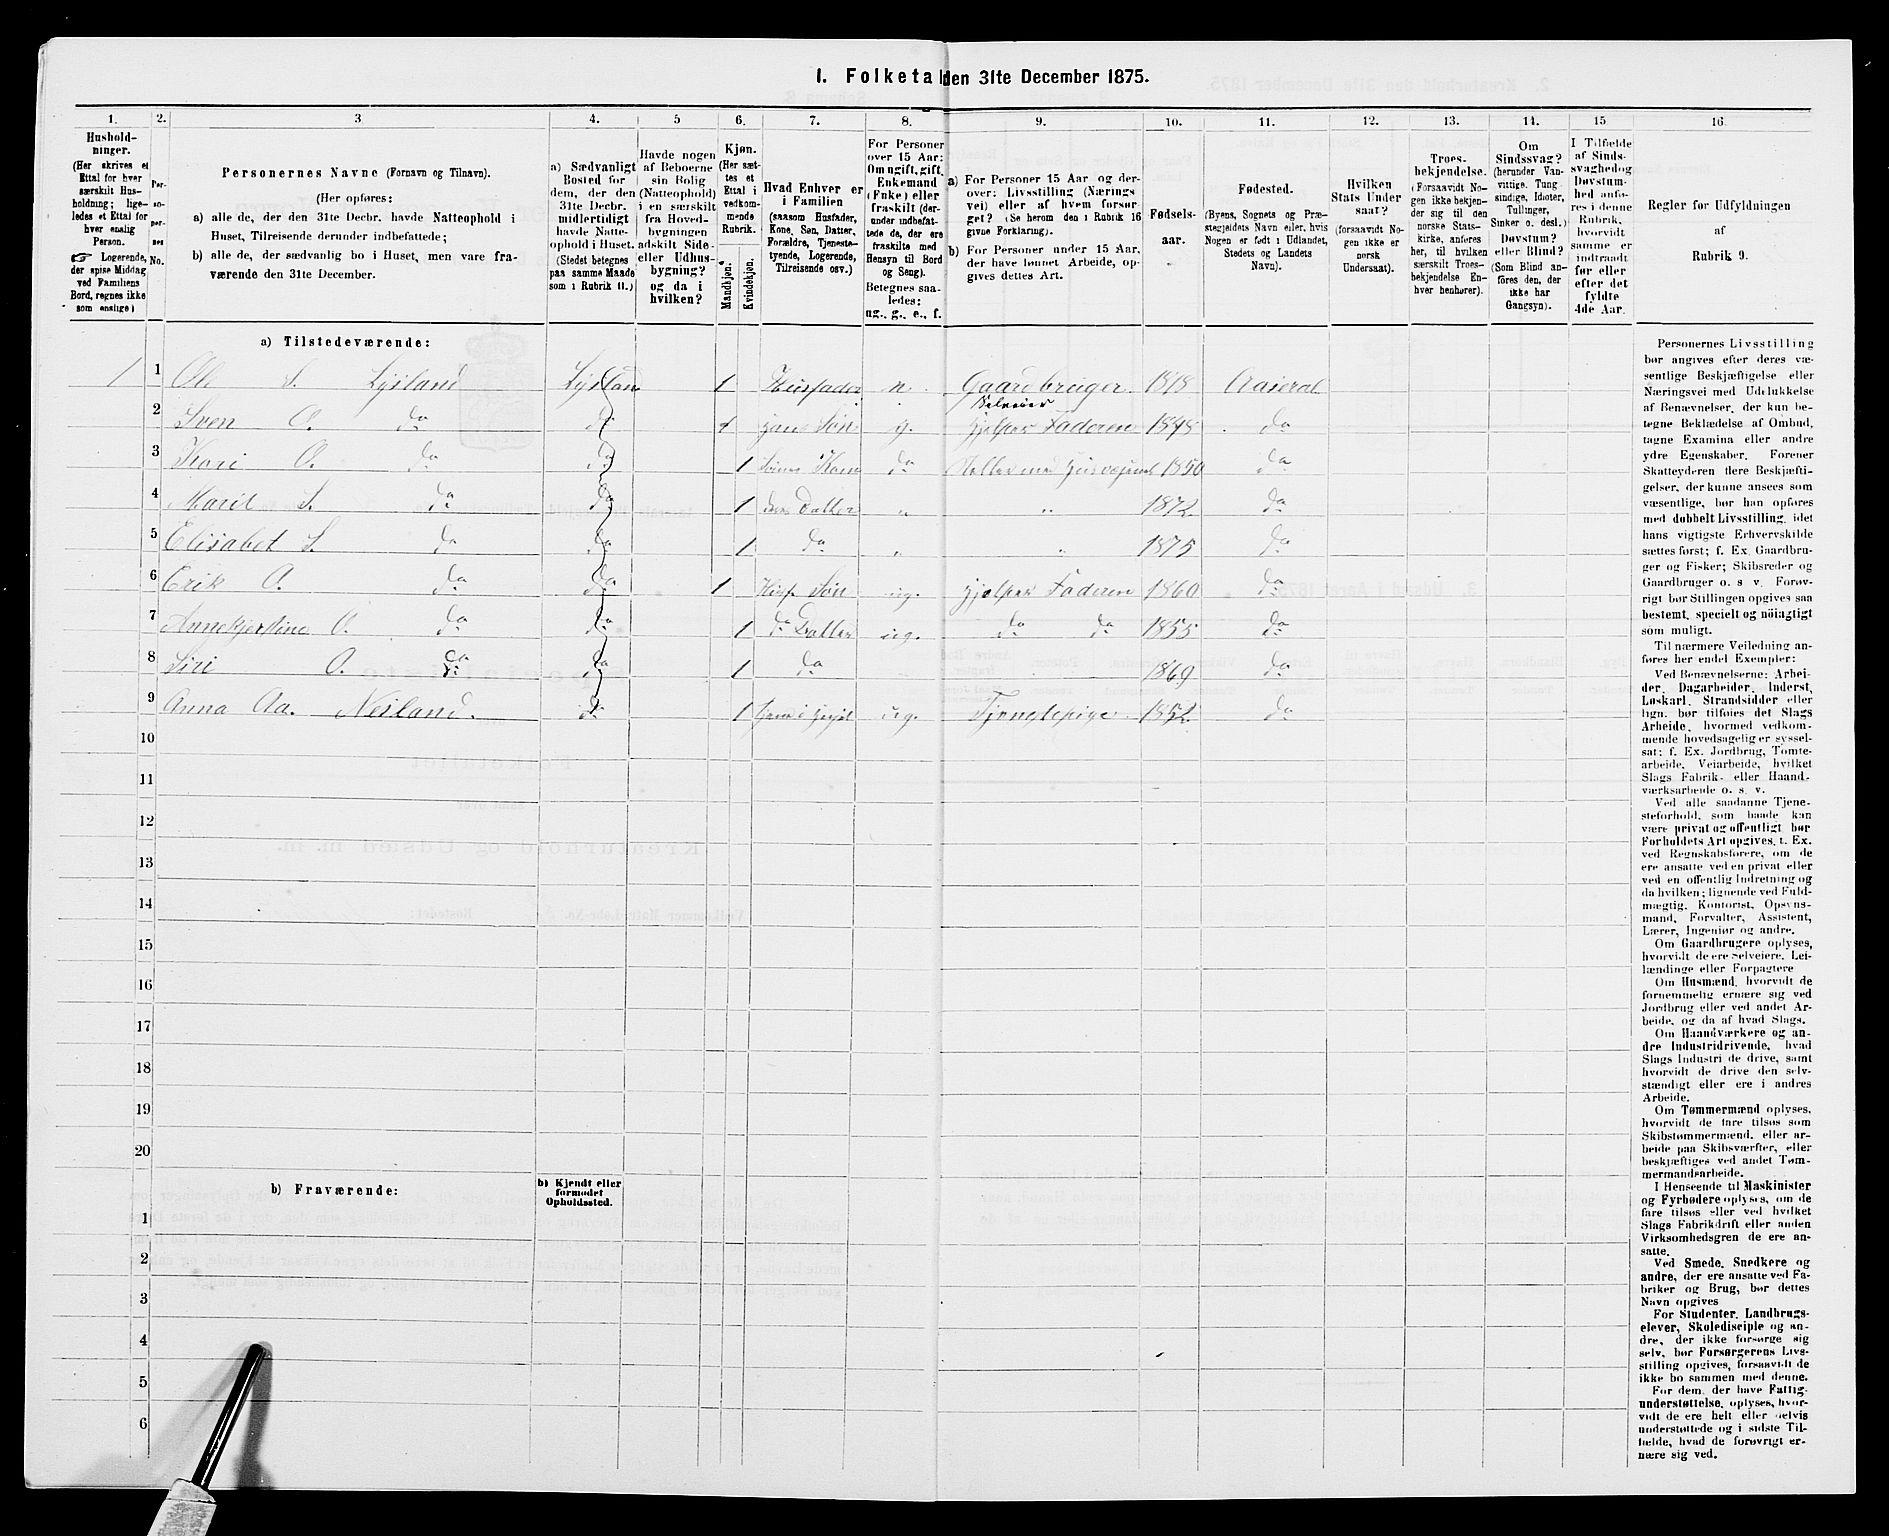 1. Folketal den 31te December 1875.
1. 2. 3 4. 5 6. 7. 8. 9. 10. 11. 12. 13. 14. 15 16.
Hushold-
ninger.
(Her skrives et
Ettal for hver
særskilt Hus-
holdning; lige-
ledes et Ettal for
hver enslig
Person.
☞ Logerende,
der spise Middag
ved Familiens
Bord, regnes ikke
som enslige)
Per-
so-
ner-
nes
No.
Personernes Navne (Fornavn og Tilnavn).
(Her opføres:
a) alle de, der den 31te Decbr. havde Natteophold i
Huset, Tilreisende derunder indbefattede;
b) alle de, der sædvanlig bo i Huset, men vare fra-
værende den 31te December.
a) Sædvanligt
Bosted for
dem, der den
31te Decbr.
midlertidigt
havde Natte-
ophold i Huset.
(Stedet betegnes
paa samme Maade
som i Rubrik 11.)
Havde nogen
af Beboerne
sin Bolig
(Natteophold)
i en særskilt
fra Hoved-
bygningen
adskilt Side-
eller Udhus-
bygning?
og da i
hvilken?
Kjøn.
(Her sæt-
tes et
Ettal i
vedkom-
mende
Rubrik.
Mandkjøn.
Kvindekjøn.
Hvad Enhver er
i Familien
(saasom Husfader,
Kone, Søn, Datter,
Forældre, Tjeneste-
tyende, Logerende,
Tilreisende osv.)
For Personer
over 15 Aar:
Om ugift, gift,
Enkemand
(Enke) eller
fraskilt (der-
under indbefat-
tede de, der ere
fraskilte med
Hensyn til Bord
og Seng).
Betegnes saa-
ledes:
ug., g., e., f.
a) For Personer 15 Aar og der-
over: Livsstilling (Nærings
vei) eller af hvem forsør-
get? (Se herom den i Rubrik 16
givne Forklaring).
b) For Personer under 15 Aar,
der have lønnet Arbeide, op-
gives dettes Art.
Fødsels-
aar.
Fødested.
(Byens, Sognets og Præ-
stegjeldets Navn eller, hvis
Nogen er født i Udlandet,
Stedets og Landets
Navn).
Hvilken
Stats Under
saat?
(forsaavidt No-
gen ikke er
norsk
Undersaat).
Troes-
bekjendelse.
(Forsaavidt No-
gen ikke bekjen-
der sig til den
norske Stats-
kirke, anføres
her, til hvilken
særskilt Troes-
bekjendelse En-
hver henhører).
Om
Sindssvag?
(herunder Van-
vittige, Tung
sindige, Idioter,
Tullinger,
Sinker o. desl.)
Døvstum?
eller Blind?
(Som Blind an-
føres den, der
ikke har
Gangsyn).
I Tilfælde
af Sinds-
svaghed og
Døvstum-
hed anfø-
res i denne
Rubrik,
hvorvidt
samme er
indtraadt
før eller
efter det
fyldte
4de Aar.
Regler for Udfyldningen
af
Rubrik 9.
a) Tilstedeværende:
1 1 Ole S. Lysland Lyslan 1 Husfader Gaardbruger Selveier 1818 Aaseral
2 Sven O. do do 1 hans Søn g. hjelper Faderen do
3 Kari O. do do 1 Kone do Husvæsenet 1850 do
4 Marit S. do do 1 Datter „ „ 1872 do
5 Elisabet S. do do 1 do „ „ 1875 do
6 Erik O. do do 1 Søn ug. hjelper Faderen 1860 do
7 Annekjerstine O. do do 1 do Datter ug. do do 1855 do
8 Siri O. do do 1 do 1869 do
9 Anna Aa. Neiland. do 1 ug. Tjenestepige 1852 do
10
11
12
13
14
15
16
17
18
19
20
b) Fraværende:
b) Kjendt eller
formodet
Opholdssted.
1
2
3
4
5
6
Personernes Livsstilling
bør angives efter deres væ-
sentlige Beskjæftigelse eller
Næringsvei med Udelukkelse
af Benævnelser, der kun be-
tegne Beklædelse af Ombud,
tagne Examina eller andre
ydre Egenskaber. Forener
Skatteyderen flere Beskjæfti-
gelser, der kunne ansees som
væsentlige, bør han opføres
med dobbelt Livsstilling, idet
hans vigtigste Erhvervskilde
sættes først; f. Ex. Gaardbru-
ger og Fisker; Skibsreder og
Gaardbruger o. s. v. Forøv-
rigt bør Stillingen opgives saa
bestemt, specielt og nöiagtigt
som muligt.
Til nærmere Veiledning an-
føres her endel Exempler:
Ved Benævnelserne: Arbei-
der, Dagarbeider, Inderst,
Løskarl, Strandsidder eller
lign. bør tilføies det Slags
Arbeide, hvormed vedkom-
mende hovedsagelig er syssel-
sat; f. Ex. Jordbrug, Tomte-
arbeide, Veiarbeide, hvilket
Slags Fabrik- eller Haand-
værksarbeide o. s. v.
Ved alle saadanne Tjene-
steforhold, som baade kan
være privat og offentligt bør
Forholdets Art opgives, t. Ex.
ved Regnskabsførere, om de
ere ansatte ved en privat eller
ved en offentlig Indretning og
da hvilken; lignende ved Fuld-
mægtig, Kontorist, Opsyns-
mand, Forvalter, Assistent,
Lærer, Ingeniør og andre.
Om Gaardbrugere oplyses,
hvorvidt de ere Selveiere, Lei-
lændinge eller Forpagtere
Om Husmænd, hvorvidt de
fornemmelig ernære sig ved
Jordbrug eller ved andet Ar-
beide, og da af hvad Slags.
Om Haandværkere og an-
dre Industridrivende, hvad
Slags Industri de drive, samt
hvorvidt de drive den selv-
stændigt eller ere i andres
Arbeide.
Om Tømmermænd oplyses,
hvorvidt de fare tilsøs som
Skibstømmermænd, eller ar-
beide paa Skibsværfter, eller
beskjæftiges ved andet Tøm-
mermandsarbeide.
I Henseende til Maskinister
og Fyrbødere oplyses, om de
fare tilsøs eller ved hvilket
Slags Fabrikdrift eller anden
Virksomhedsgren de ere an-
satte.
Ved Smede, Snedkere og
andre, der ere ansatte ved Fa-
briker og Brug, bør dettes
Navn opgives
For Studenter, Landbrugs-
elever, Skoledisciple og an-
dre, der ikke forsørge sig
selv, bør Forsørgerens Livs-
stilling opgives, forsaavidt de
ikke bo sammen med denne.
For dem, der have Fattig-
understøttelse, oplyses, hvor-
vidt de ere helt eller delvis
understøttede og i sidste Til-
fælde, hvad de forøvrigt er-
nære sig ved.